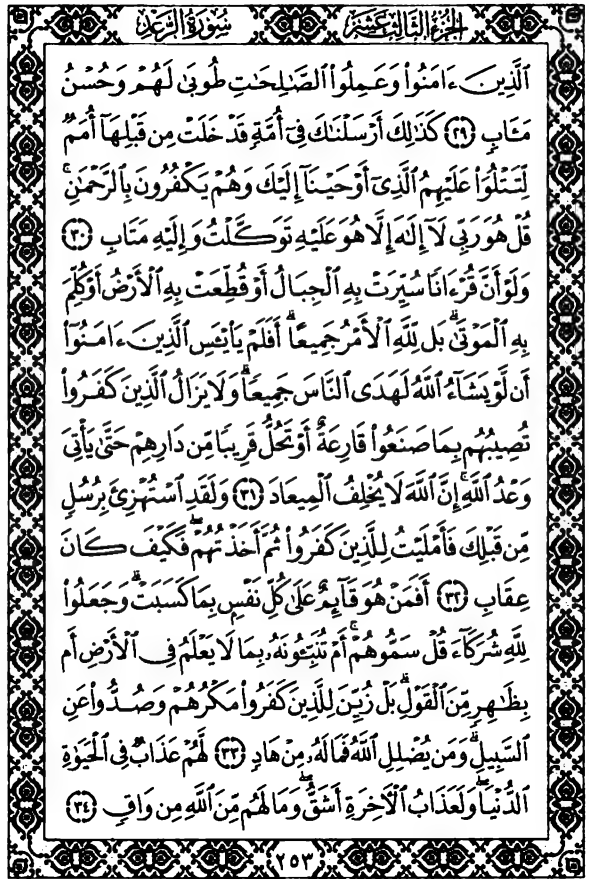 الجزء الثالث عشر سورة الرعد
ٱلَّذِينَ ءَامَنُوا۟ وَعَمِلُوا۟ ٱلصَّٰلِحَٰتِ طُوبَىٰ لَهُمْ وَحُسْنُ
مَـَٔابٍ ٢٩ كَذَٰلِكَ أَرْسَلْنَٰكَ فِىٓ أُمَّةٍ قَدْ خَلَتْ مِن قَبْلِهَآ أُمَمٌ
لِّتَتْلُوَا۟ عَلَيْهِمُ ٱلَّذِىٓ أَوْحَيْنَآ إِلَيْكَ وَهُمْ يَكْفُرُونَ بِٱلرَّحْمَٰنِ ۚ
قُلْ هُوَ رَبِّى لَآ إِلَٰهَ إِلَّا هُوَ عَلَيْهِ تَوَكَّلْتُ وَإِلَيْهِ مَتَابِ ٣٠
وَلَوْ أَنَّ قُرْءَانًا سُيِّرَتْ بِهِ ٱلْجِبَالُ أَوْ قُطِّعَتْ بِهِ ٱلْأَرْضُ أَوْ كُلِّمَ
بِهِ ٱلْمَوْتَىٰ ۗ بَل لِّلَّهِ ٱلْأَمْرُ جَمِيعًا ۗ أَفَلَمْ يَا۟يْـَٔسِ ٱلَّذِينَ ءَامَنُوٓا۟
أَن لَّوْ يَشَآءُ ٱللَّهُ لَهَدَى ٱلنَّاسَ جَمِيعًا ۗ وَلَا يَزَالُ ٱلَّذِينَ كَفَرُوا۟
تُصِيبُهُم بِمَا صَنَعُوا۟ قَارِعَةٌ أَوْ تَحُلُّ قَرِيبًا مِّن دَارِهِمْ حَتَّىٰ يَأْتِىَ
وَعْدُ ٱللَّهِ ۚ إِنَّ ٱللَّهَ لَا يُخْلِفُ ٱلْمِيعَادَ ٣١ وَلَقَدِ ٱسْتُهْزِئَ بِرُسُلٍ
مِّن قَبْلِكَ فَأَمْلَيْتُ لِلَّذِينَ كَفَرُوا۟ ثُمَّ أَخَذْتُهُمْ ۖ فَكَيْفَ كَانَ
عِقَابِ ٣٢ أَفَمَنْ هُوَ قَآئِمٌ عَلَىٰ كُلِّ نَفْسٍۭ بِمَا كَسَبَتْ ۗ وَجَعَلُوا۟
لِلَّهِ شُرَكَآءَ قُلْ سَمُّوهُمْ ۚ أَمْ تُنَبِّـُٔونَهُۥ بِمَا لَا يَعْلَمُ فِى ٱلْأَرْضِ أَم
بِظَٰهِرٍ مِّنَ ٱلْقَوْلِ ۗ بَلْ زُيِّنَ لِلَّذِينَ كَفَرُوا۟ مَكْرُهُمْ وَصُدُّوا۟ عَنِ
ٱلسَّبِيلِ ۗ وَمَن يُضْلِلِ ٱللَّهُ فَمَا لَهُۥ مِنْ هَادٍ ٣٣ لَّهُمْ عَذَابٌ فِى ٱلْحَيَوٰةِ
ٱلدُّنْيَا ۖ وَلَعَذَابُ ٱلْـَٔاخِرَةِ أَشَقُّ ۖ وَمَا لَهُم مِّنَ ٱللَّهِ مِن وَاقٍ ٣٤
٢٥٣